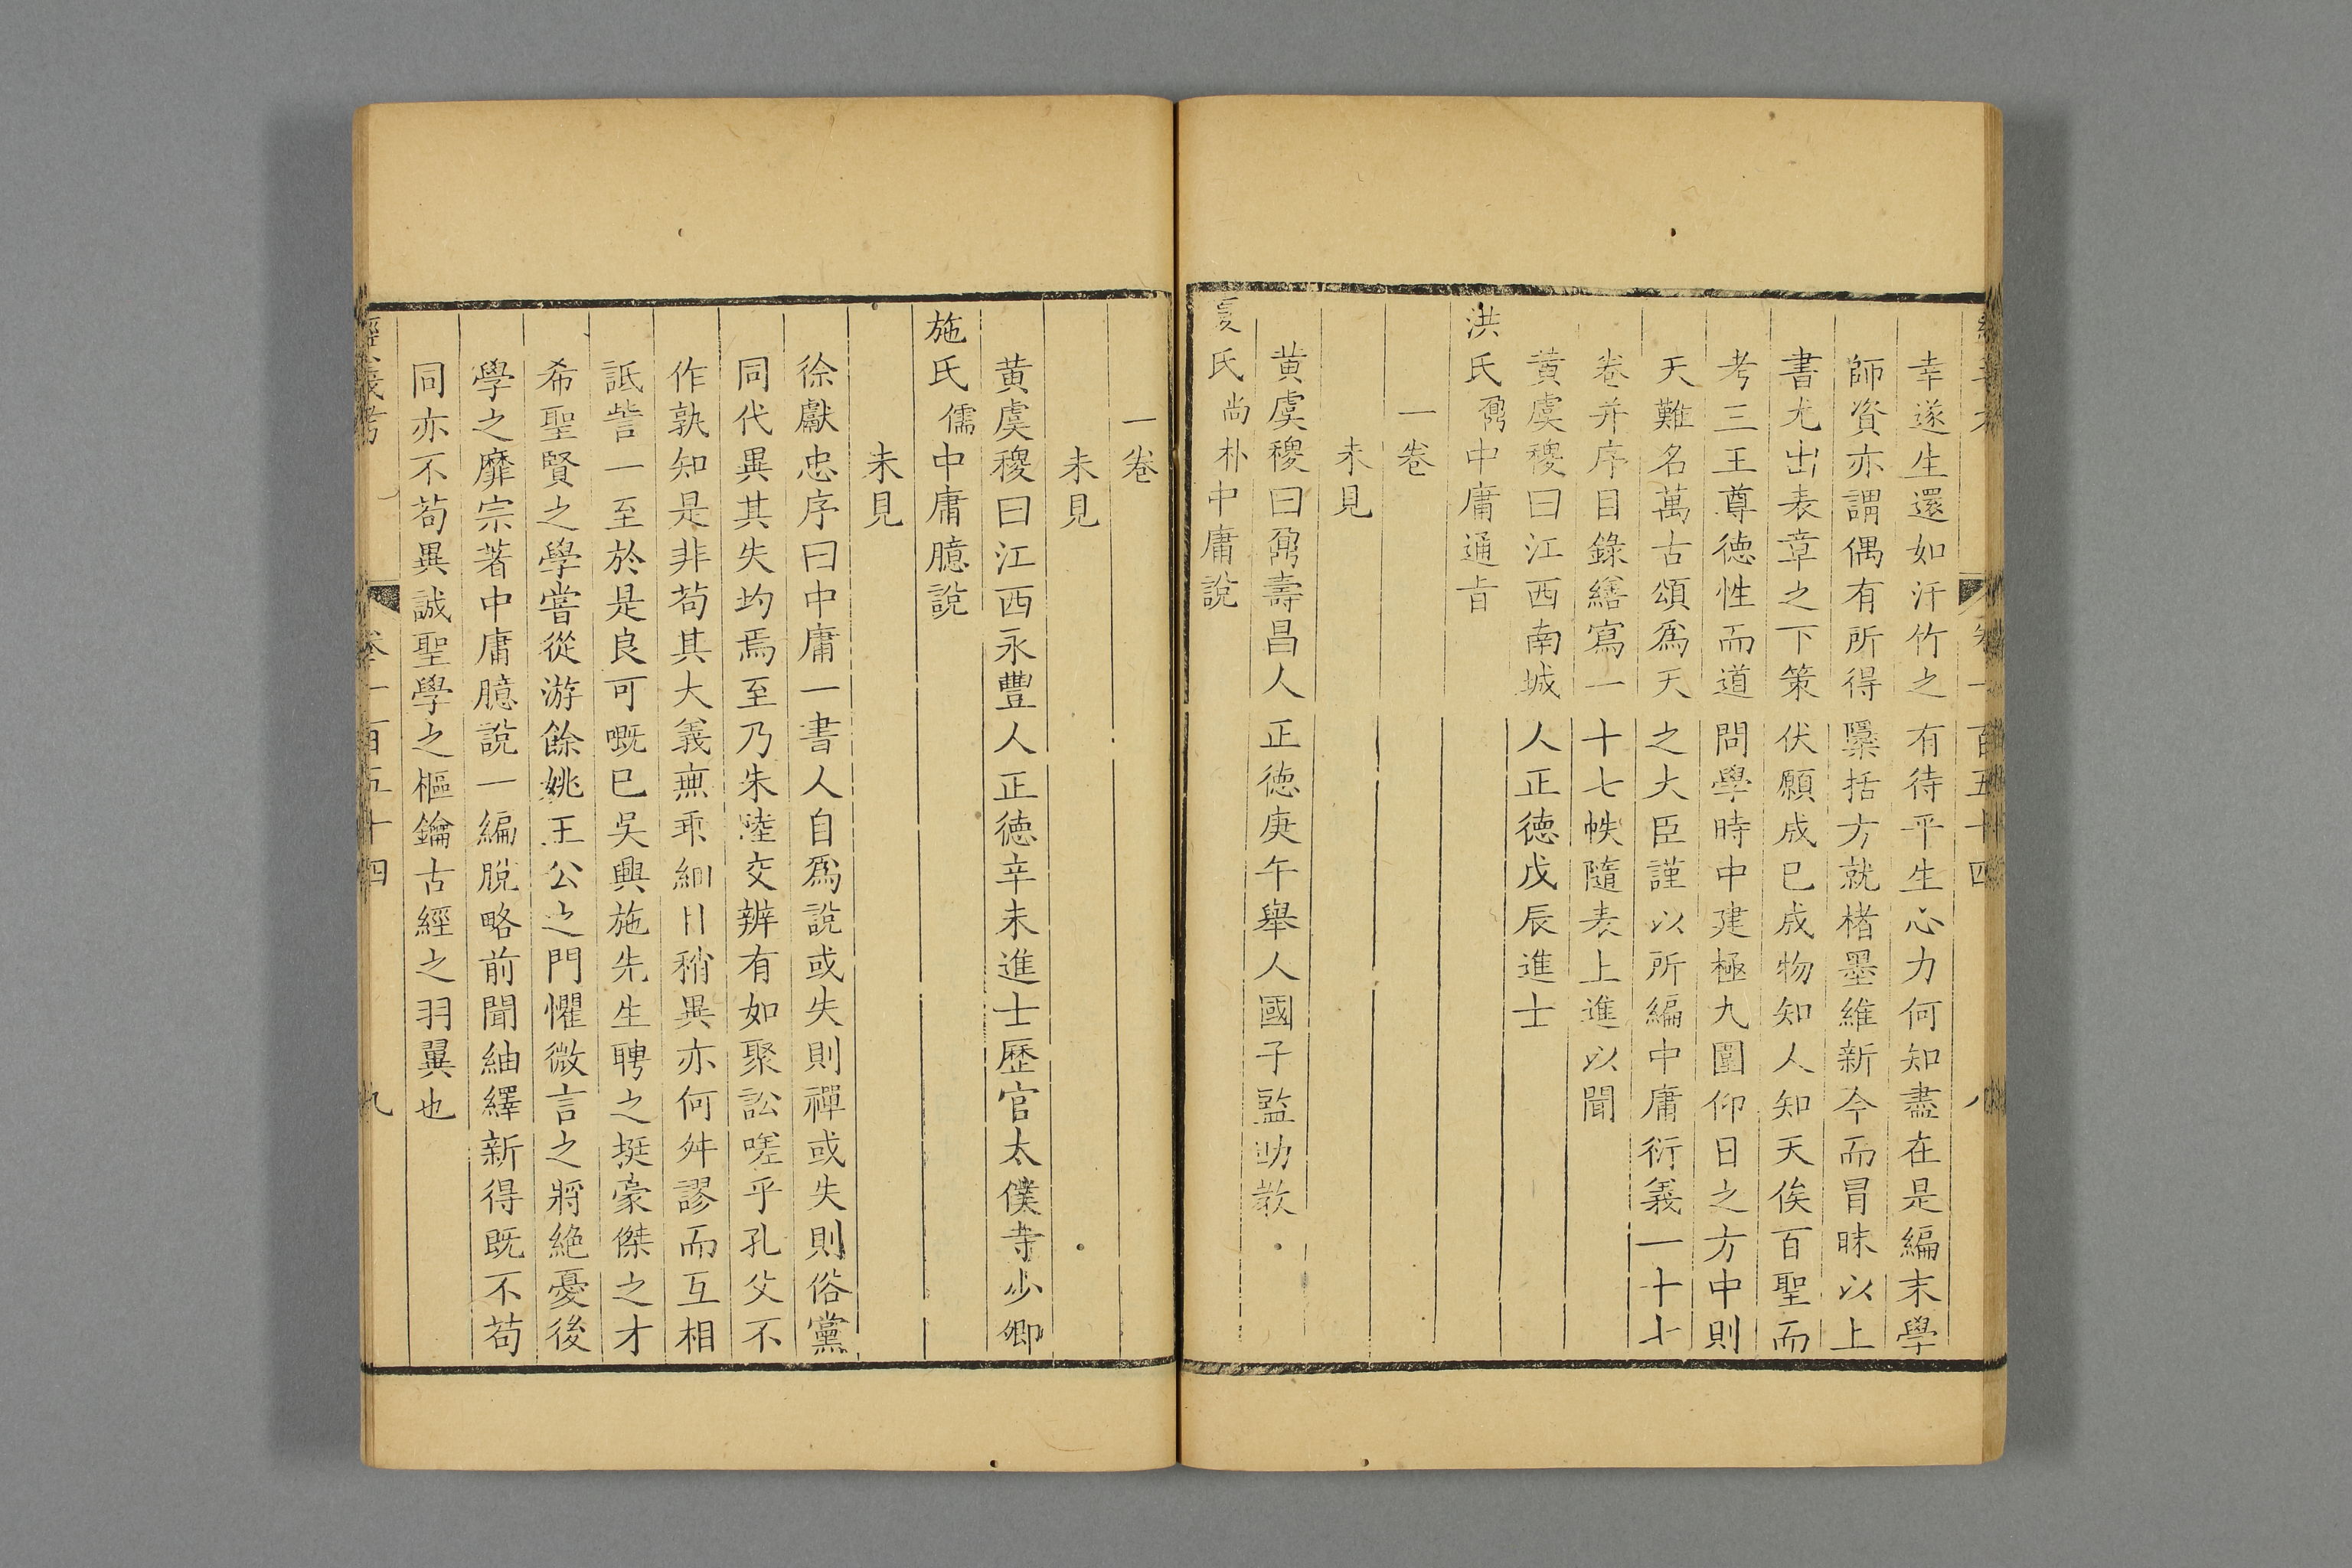 幸遂生還如汗竹之有待平生心力何知盡在是編末學
師資亦謂偶有所得櫽括方就楮墨維新今而冒昧以上
書尤出表章之下策伏願成已成物知人知天俟百聖而
考三王尊德性而道問學時中建極九圍仰日之方中則
天難名萬古頌爲天之大臣謹以所編中庸衍義一十七
卷并序目錄繕寫一十七帙隨表上進以聞
黃虞稷曰江西南城人正德戊辰進士
洪氏鼐中庸通旨
一卷
未見
黃虞稷曰鼐壽昌人正德庚午舉人國子監助教
夏氏尚朴中庸說
一卷
未見
黃虞稷曰江西永豐人正德辛未進士歷官太僕寺少卿
施氏儒中庸臆說
未見
徐獻忠序曰中庸一書人自爲說或失則禪或失則俗黨
同代異其失均焉至乃朱陸交辨有如聚訟嗟乎孔父不
作孰知是非苟其大義無乖細目稍異亦何舛謬而互相
詆訾一至於是良可嘅已吳興施先生聘之挺豪傑之才
希聖賢之學嘗從游餘姚王公之門懼微言之將絶憂後
學之靡宗著中庸臆說一編脫略前聞紬繹新得既不苟
同亦不苟異誠聖學之樞鑰古經之羽翼也
經義考 卷一百五十四 九